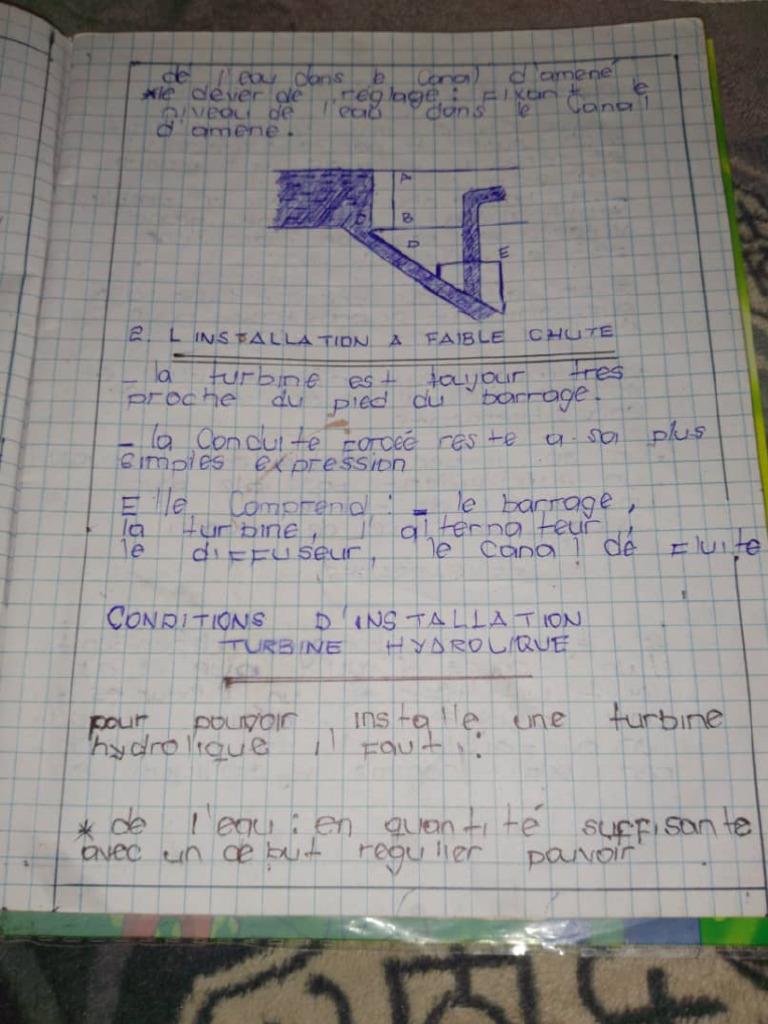 de l'eau dans le canal d'amené
*le déver de réglage : Fixant le
niveau de l'eau dans le canal
d'amené.
A
B
D
E
2. L INSTALLATION A FAIBLE CHUTE
- la turbine est toujour tres
proche du pied du barrage.
- la Conduite Forcéé reste a sa plus
simples expression
Elle Comprend : - le barrage,
la turbine, l'alternateur,
le diffuseur, le canal dé Fluite
CONDITIONS D'INSTALLATION
TURBINE HYDROLIQUE
pour pouvoir installe une turbine
hydrolique il faut :
* de l'eau : en quantité suffisante
avec un debut regulier pouvoir